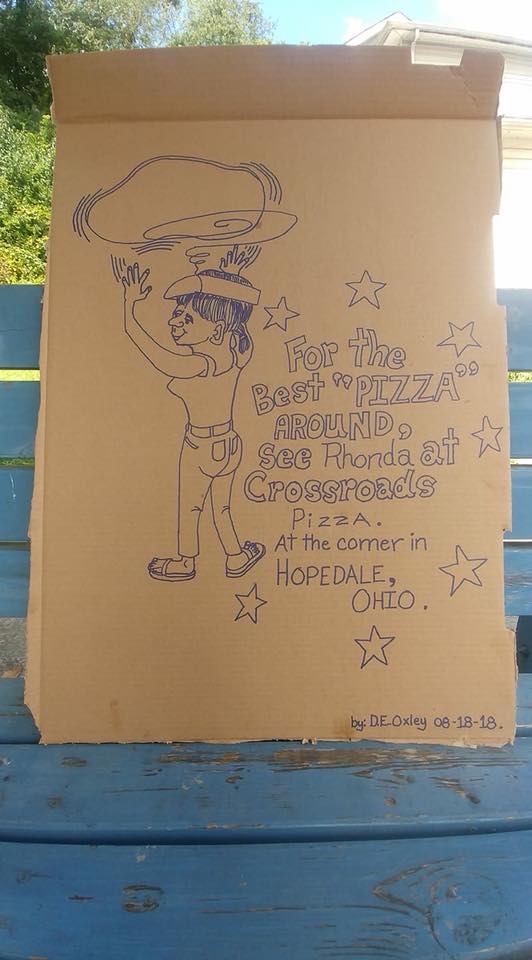 For the
Best "PIZZA"
AROUND,
See Rhonda at
Crossroads
PizzA.
At the corner in
HOPEDALE,
OHIO.
by: D.E.Oxley 08-18-18.